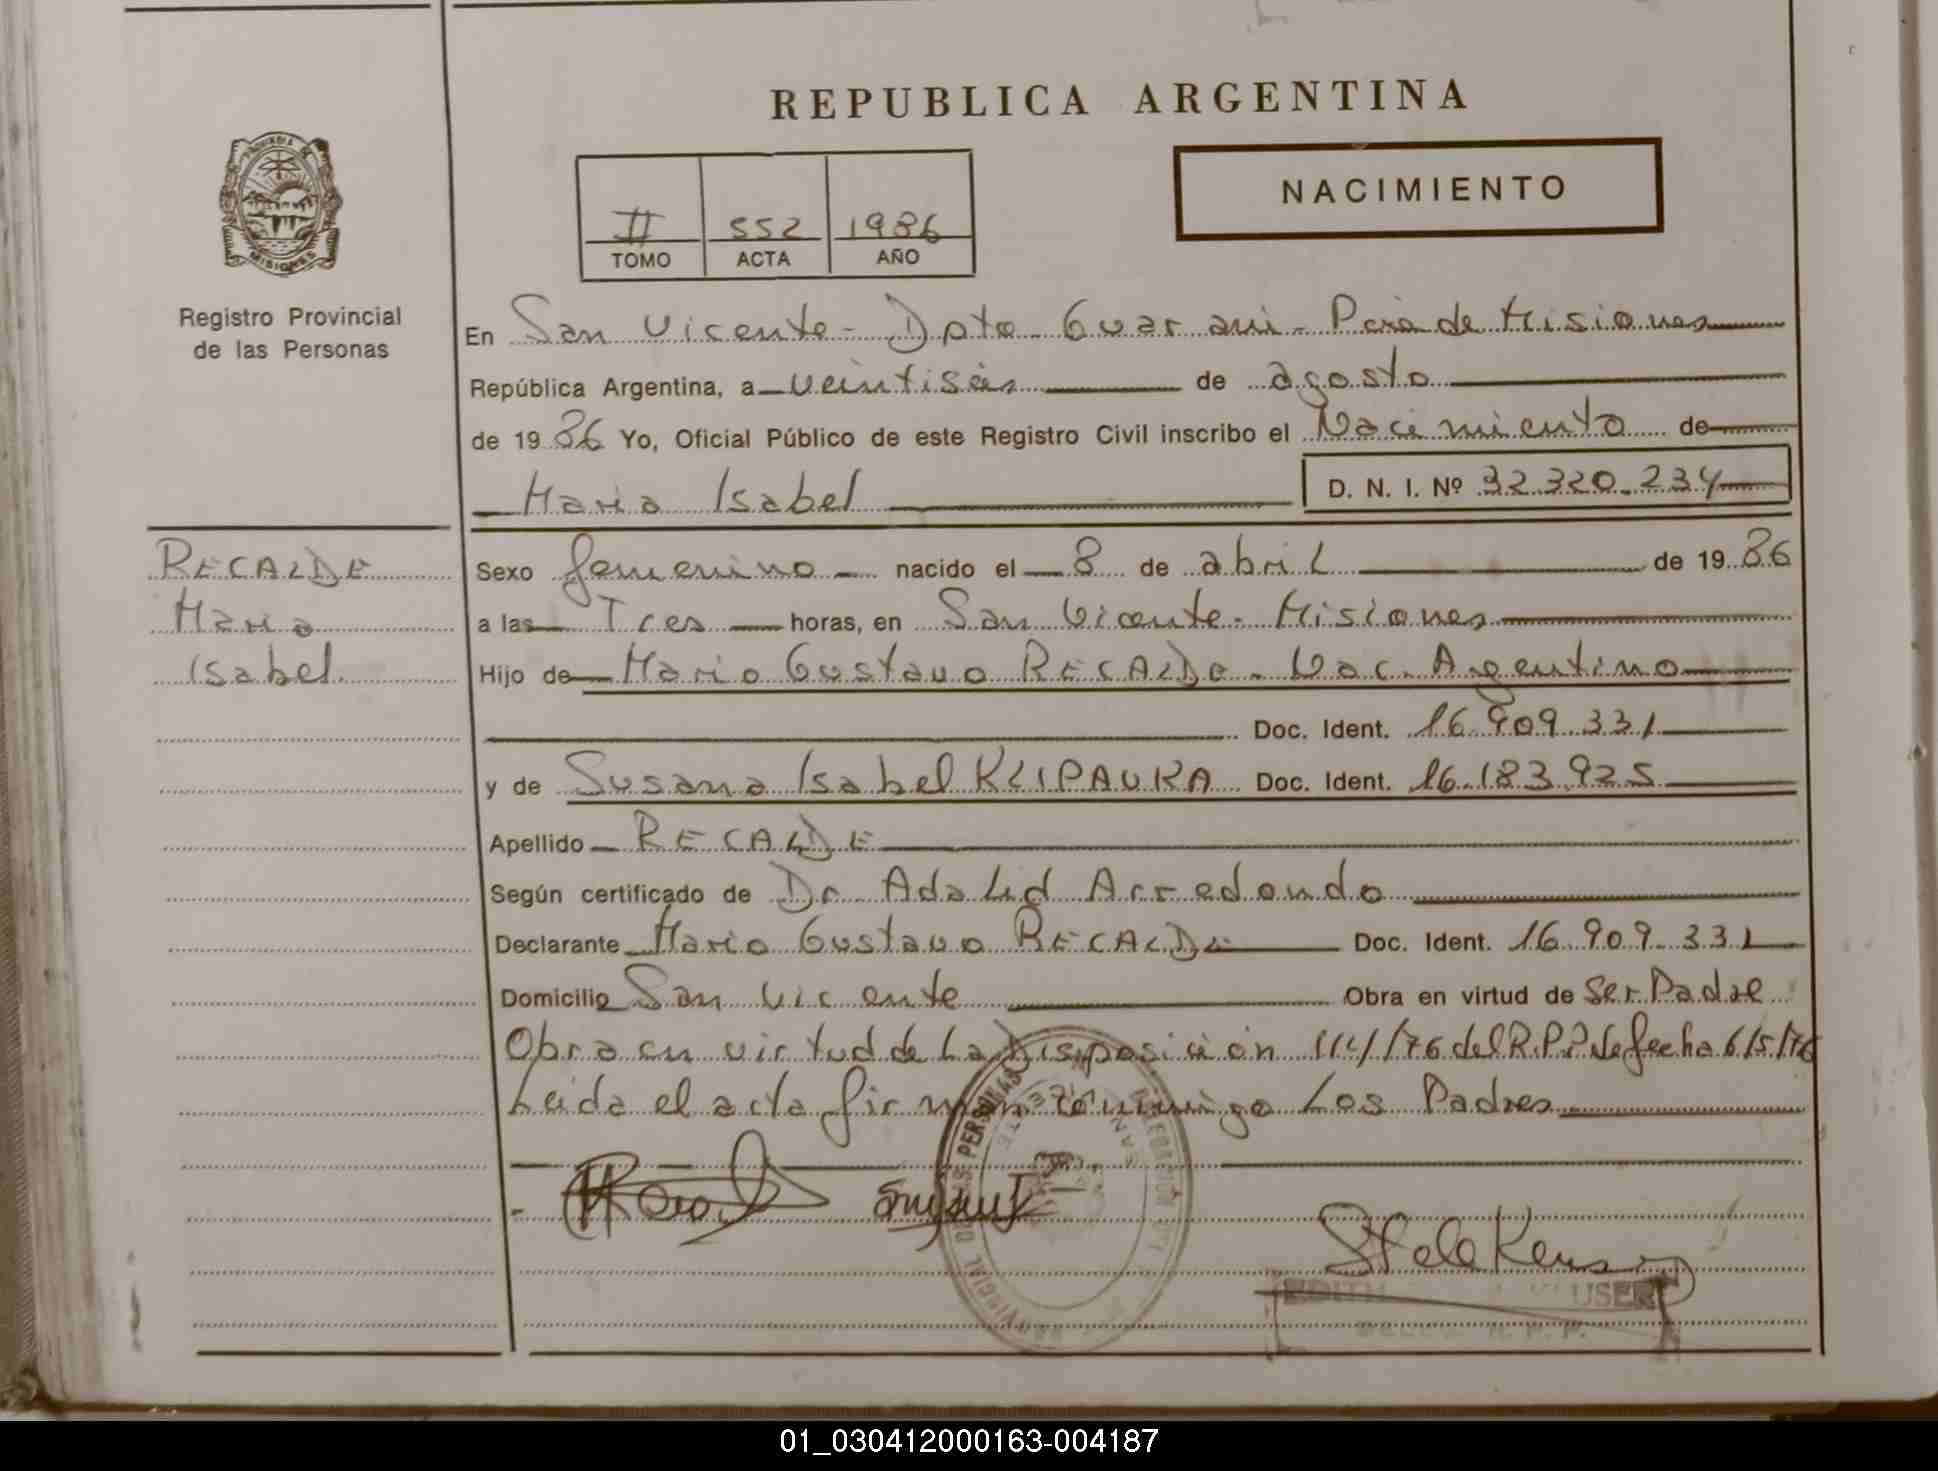 REPUBLICA ARGENTINA
NACIMIENTO
II 552 1986
TOMO ACTA AÑO
MISIONES
Registro Provincial
de las Personas
En San Vicente - Dpto Guarani - Pcia de Misiones
República Argentina, a veintiseis de agosto
de 19 86 Yo, Oficial Público de este Registro Civil inscribo el Nacimiento de
Maria Isabel D. N. I. Nº 32.320.234
RECALDE
Maria
Isabel
Sexo femenino nacido el 8 de abril de 19 86
a las Tres horas, en San Vicente - Misiones
Hijo de Mario Gustavo RECALDE - Nac. Argentino
Doc. Ident. 16.909.331
y de Susana Isabel KLIPAUKA Doc. Ident. 16.183.925
Apellido RECALDE
Según certificado de Dr Adalid Arredondo
Declarante Mario Gustavo RECALDE Doc. Ident. 16.909.331
Domicilio San Vicente Obra en virtud de Ser Padre
Obra en virtud de La Disposición 114/76 del R.P.P de fecha 6/5/76
Leida el acta firman conmigo Los Padres
PERSONAS
EDITH
01_030412000163-004187